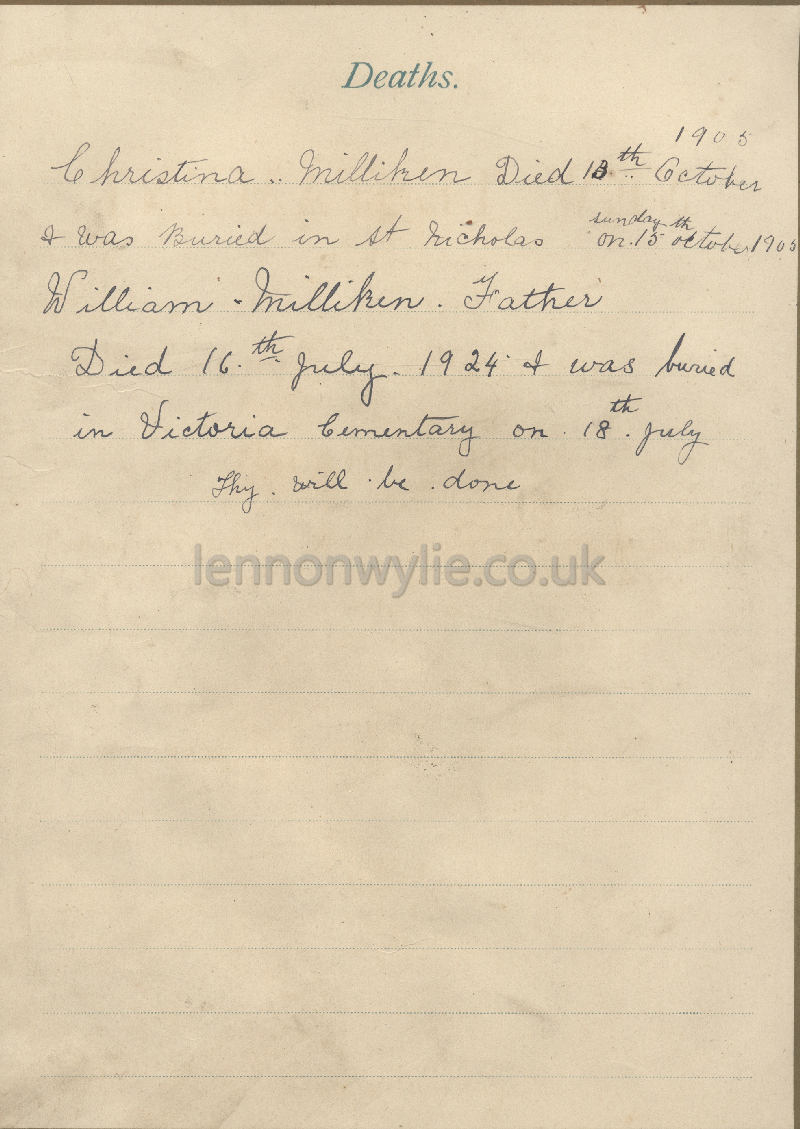 Deaths.
1905
Christina .. Milliken Died 13th October
& was Buried in St Nicholas sunday on. 15th october 1905
William - Milliken. Father
Died 16.th July. 1924 & was buried
in Victoria Cementary on 18th. July
Thy. will. be. done
lennonwylie.co.uk